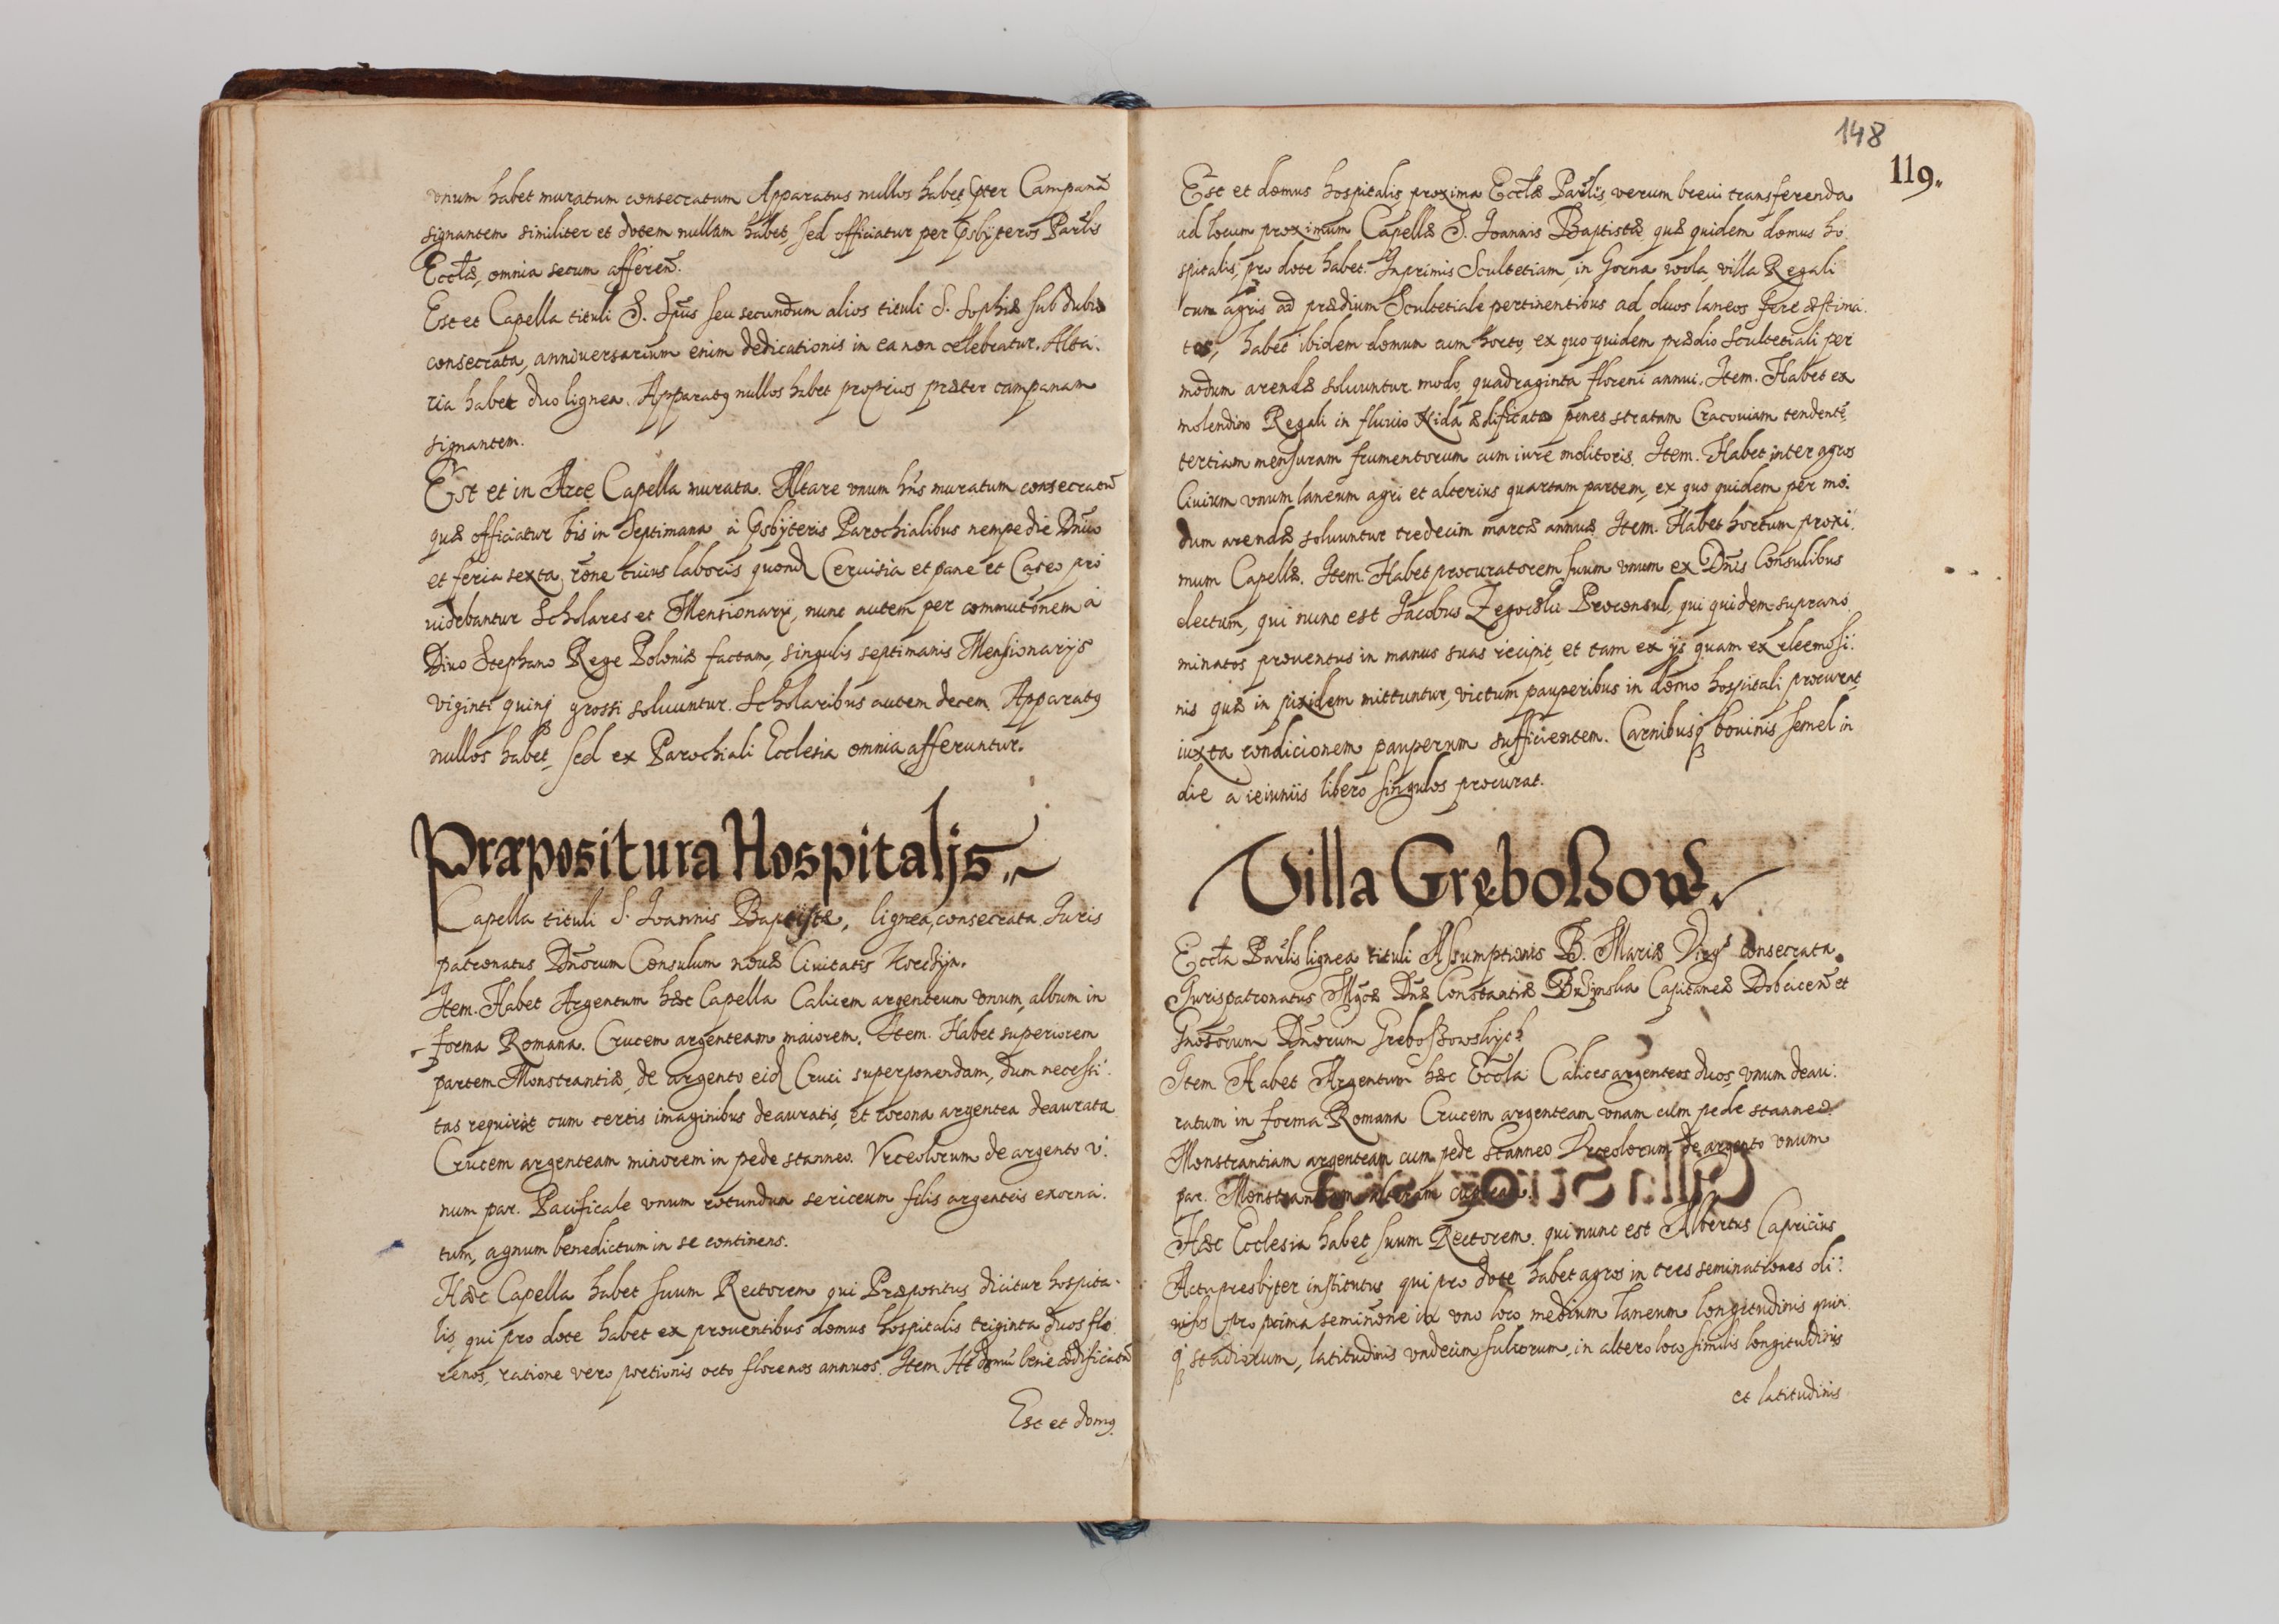 vnum habet muratum consecratum Apparatus nullos habet pter Campanā
signantem similiter et dotem nullam habet, sed officiatur per Psbyteros Parlis
Ecclæ, omnia secum afferen̄.
Est et Capella tituli S. Spūs seu secundum alios tituli S. Sophiæ sub dubio
consecrata, anniuersarium enim dedicationis in ea non celebratur. Alta:
ria habet duo lignea. Apparatq nullos habet proprios præter campanam
signantem.
Est et in Arce Capella murata. Altare vnum hn̄s muratum consecratū
quæ officiatur bis in Septimana à Psbyteris Parochialibus nempe die Dn̄ico
et feria sexta, rōne cuius laboris quond Ceruisia et pane et Caseo pro
uidebantur Scholares et Mensionarij, nunc autem per commutōnem à
Diuo Stephano Rege Poloniæ factam, singulis septimanis Mensionarijs
viginti quinq grossi soluuntur. Scholaribus autem decem. Apparatq
nullos habet, sed ex Parochiali Ecclesia omnia afferuntur.
Præpositura Hospitalis.
Capella tituli S. Joannis Baptistæ, lignea, consecrata. Juris
patronatus Dn̄orum Consulum nouæ Ciuitatis Korczyn.
Item. Habet Argentum hæc Capella Calicem argenteum vnum, album in
forma Romana. Crucem argenteam maiorem. Item. Habet superiorem
partem Monstrantiæ, de argento eid Cruci superponendam, dum necessi:
tas requirit cum certis imaginibus deauratis, et corona argentea deaurata
Crucem argenteam minorem in pede stanneo. Vrceolorum de argento v:
num par. Pacificale vnum rotundum sericeum filis argenteis exorna:
tum, agnum benedictum in se continens.
Hæc Capella habet suum Rectorem qui Præpositus dicitur hospita:
lis, qui pro dote habet ex prouentibus domus hospitalis triginta duos flo
renos, ratione vero portionis octo florenos annuos. Item. Ht domū bene ædificatā
Est et domq
148
119.
Est et domus hospitalis proxima Ecclæ Parlis, verum breui transferenda
ad locum proximum Capellæ S. Joannis Baptistæ, quæ quidem domus ho
spitalis, pro dote habet. Inprimis Scultetiam, in Gorna wola, villa Regali
cum agris ad prædium Scultetiale pertinentibus ad duos laneos fere æstima
tos, habet ibidem domum cum horto, ex quo quidem prædio Scultetiali per
modum arendæ soluuntur modo, quadraginta floreni annui. Item. Habet ex
molendino Regali in fluuio Nida ædificato penes stratam Cracouiam tendentē
tertiam mensuram frumentorum cum iure molitoris. Item. Habet inter agros
Ciuium vnum laneum agri et alterius quartam partem, ex quo quidem per mo:
dum arendæ soluuntur tredecim marcæ annuæ. Item. Habet hortum proxi:
mum Capellæ. Item. Habet procuratorem suum vnum ex Dn̄is Consulibus
electum, qui nunc est Jacobus Proconsul, qui quidem suprano
minatos prouentus in manus suas recipit, et tam ex ijs quam ex eleemosi:
nis quæ in pixidem mittuntur, victum pauperibus in domo hospitali procurat,
iuxta condicionem pauperum sufficientem. Carnibusq bouinis semel in
die a ieiuniis libero singulos procurat.
Villa GręboßowP
Eccla Parlis lignea tituli Assumptionis B. Mariæ Virgs consecrata.
Jurispatronatus Mgcæ Dn̄æ Constantiæ Capitaneæ Dobcicen̄ et
Gnosorum Dn̄orum Greboßowskych
Item Habet Argentum hæc Eccla Calices argenteos duos, vnum deau:
ratum in forma Romana Crucem argenteam vnam cum pede stanneo.
Monstrantiam argenteam cum pede stanneo Vrceolorum de argento vnum
par. Monstrantiam alteram cupream.
Hæc Ecclesia habet suum Rectorem. qui nunc est Albertus Capricius
Actu presbyter institutus qui pro dote habet agros in tres seminationes di:
uisos pro prima seminōne in vno loco medium laneum longitudinis quin
q stadiorum, latitudinis vndecim sulcorum, in altero loco similis longitudinis
et latitudinis